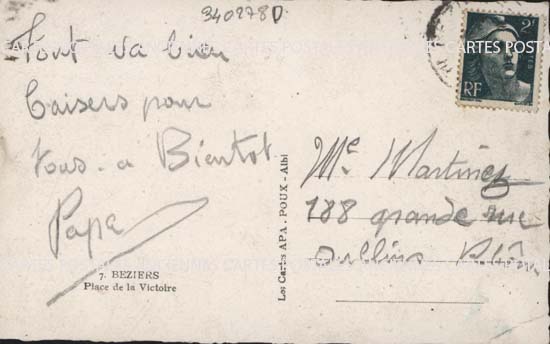 340278D
Tout va bien
baisers pour
tous. a Bientot
Papa
7. BEZIERS
Place de la Victoire
Les Cartes APA. POUX - Albi
2F
RF
Me Martinez
188 grande rue
Oullins Rhône
CARTES POSTALES ANCIENNES CARTES POSTALES